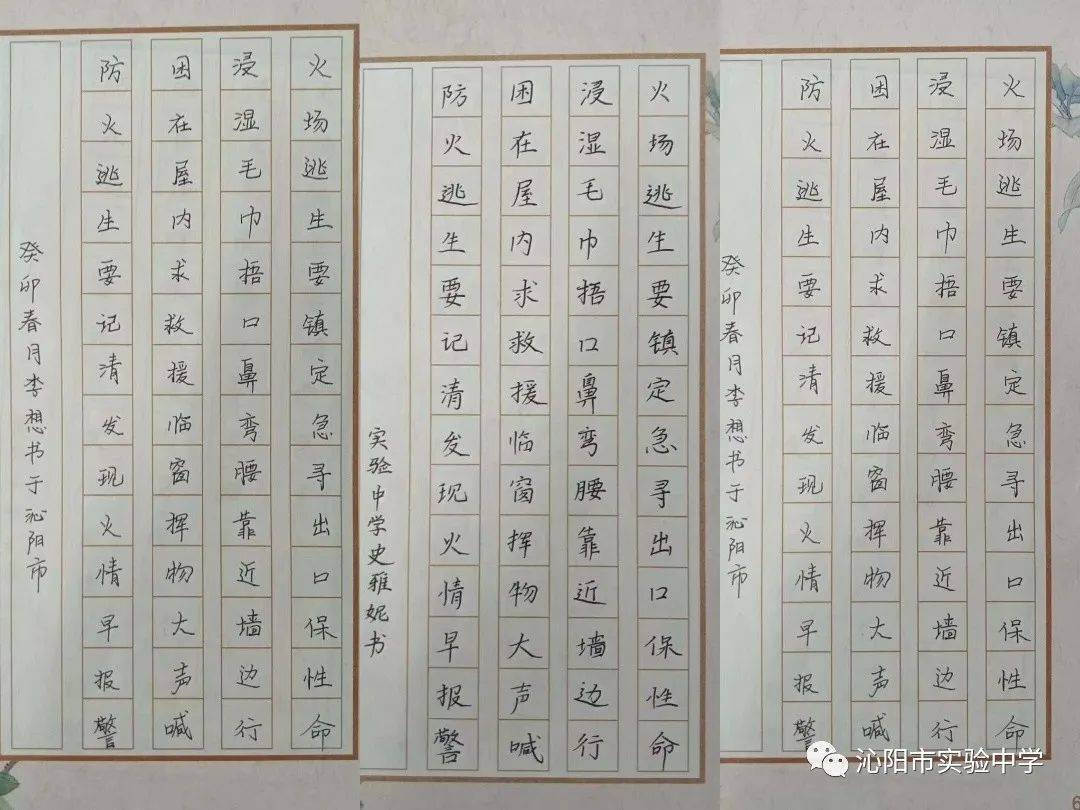 火场逃生要镇定急寻出口保性命
浸湿毛巾捂口鼻弯腰靠近墙边行
困在屋内求救援临窗挥物大声喊
防火逃生要记清发现火情早报警
癸卯春月李想书于沁阳市
火场逃生要镇定急寻出口保性命
浸湿毛巾捂口鼻弯腰靠近墙边行
困在屋内求救援临窗挥物大声喊
防火逃生要记清发现火情早报警
实验中学史雅妮书
火场逃生要镇定急寻出口保性命
浸湿毛巾捂口鼻弯腰靠近墙边行
困在屋内求救援临窗挥物大声喊
防火逃生要记清发现火情早报警
癸卯春月李想书于沁阳市
沁阳市实验中学